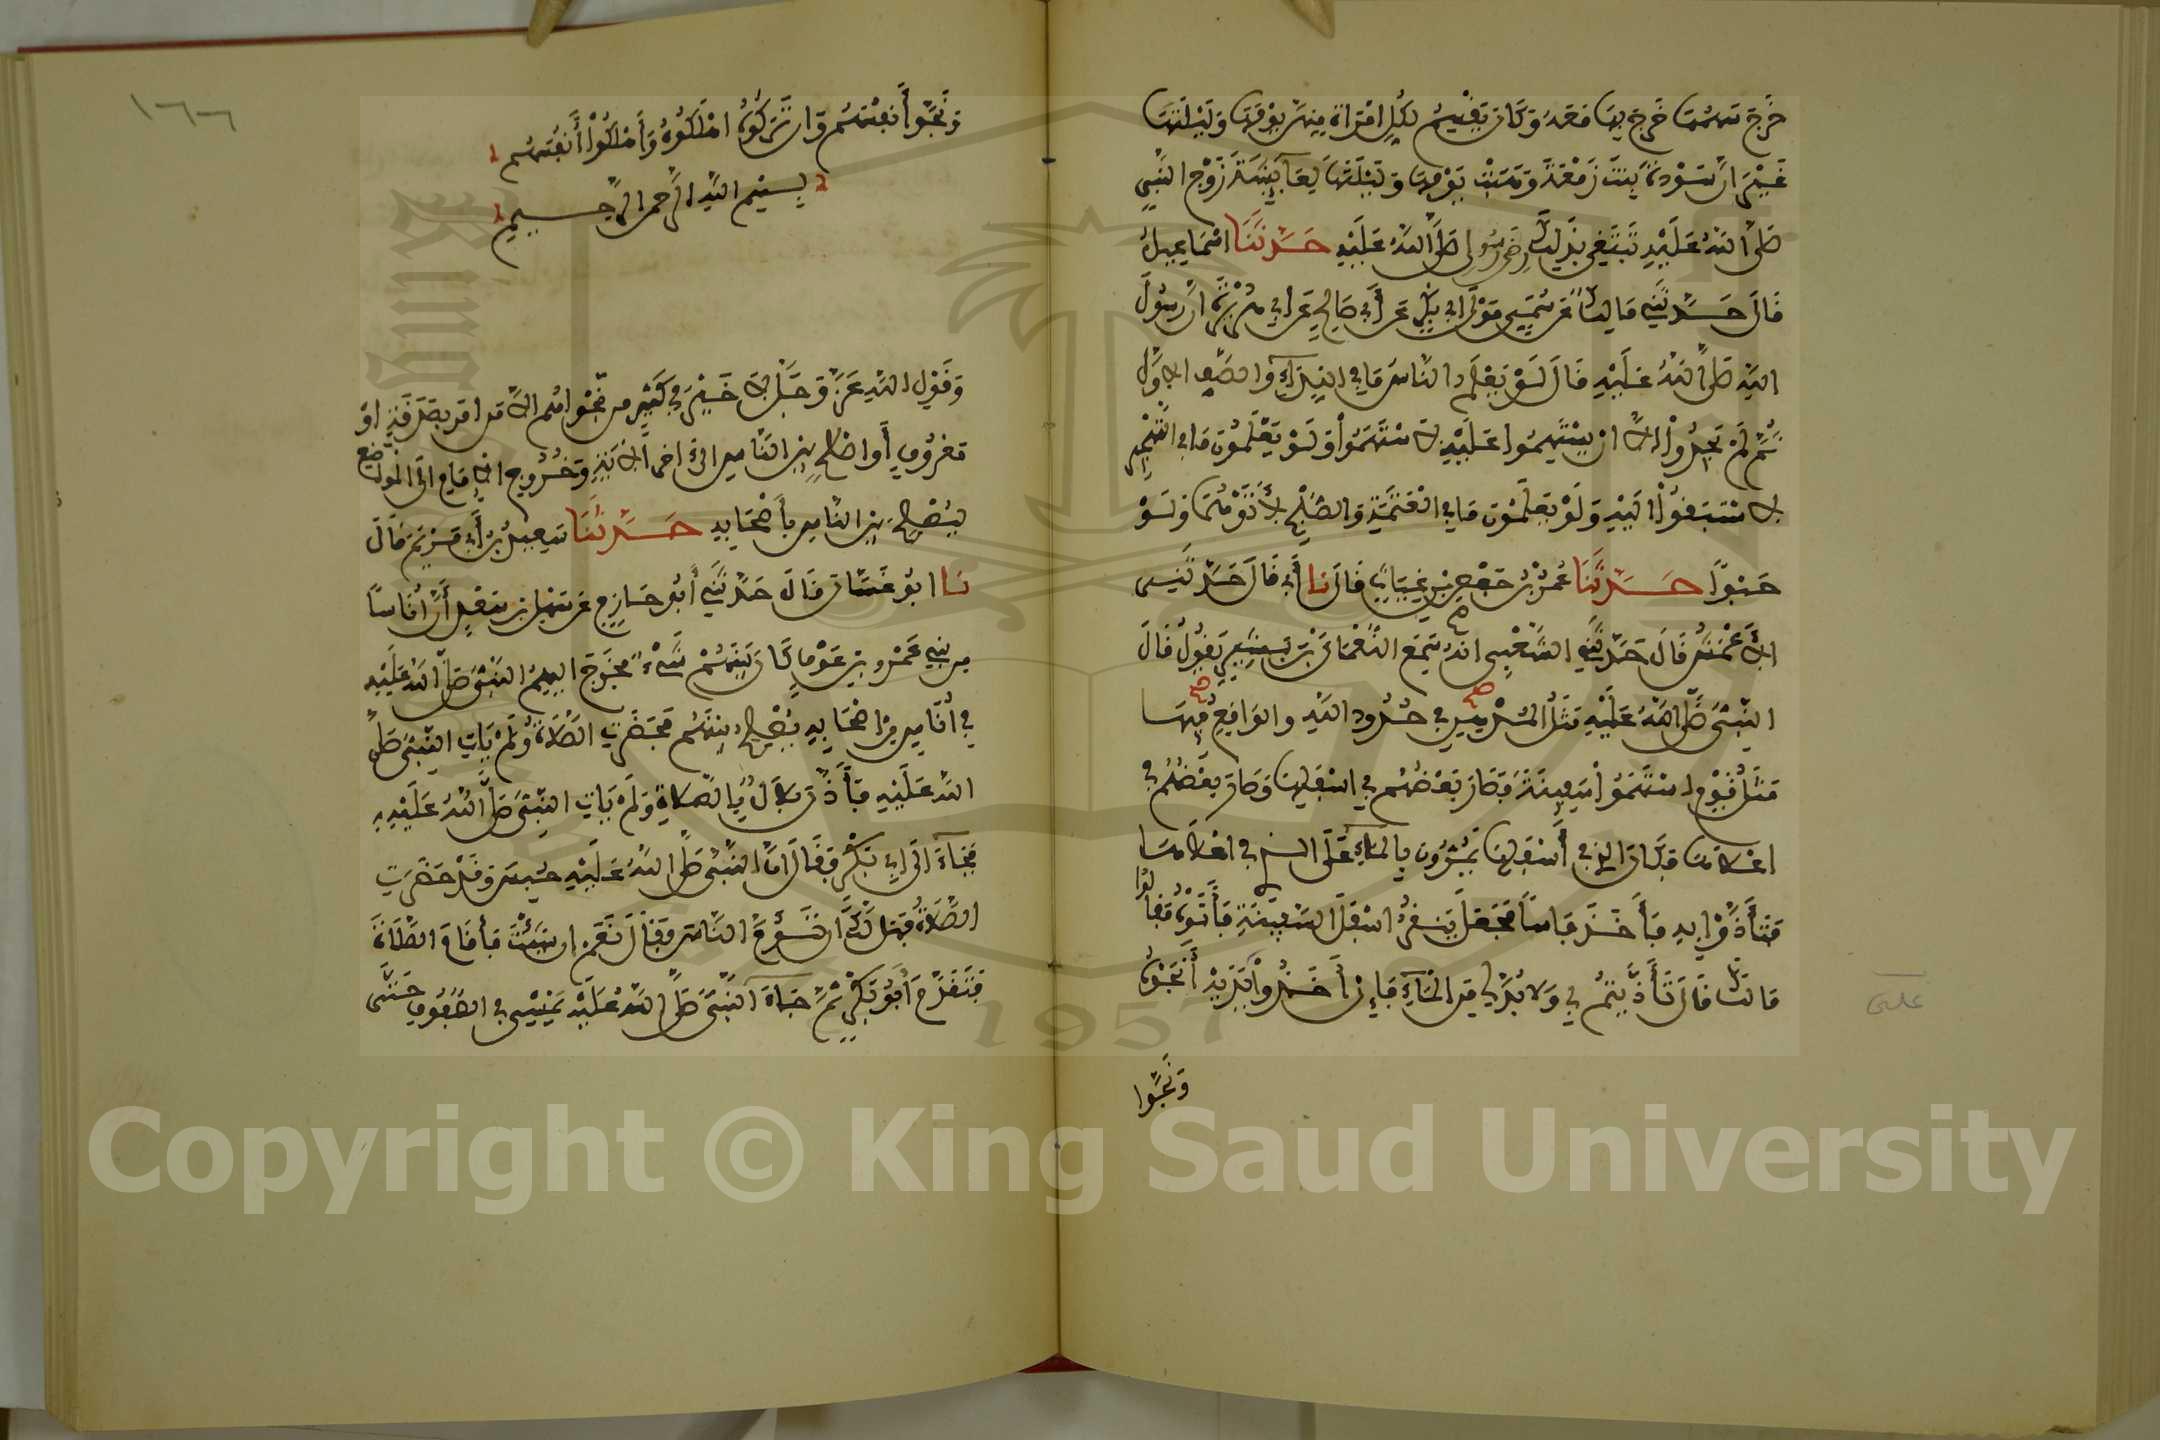 خَرَجَ سَهْمُهَا خَرَجَ بِهَا مَعَهُ وَكَانَ يَقْسِمُ لِكُلِّ امْرَأَةٍ مِنْهُنَّ يَوْمَهَا وَلَيْلَتَهَا
غَيْرَ أَنَّ سَوْدَةَ بِنْتَ زَمْعَةَ وَهَبَتْ يَوْمَهَا وَلَيْلَتَهَا لِعَائِشَةَ زَوْجِ النَّبِيِّ
صَلَّى اللهُ عَلَيْهِ تَبْتَغِي بِذَلِكَ رِضَى رَسُولِ صَلَّى اللهُ عَلَيْهِ حَدَّثَنَا اسْمَاعِيلُ
قَالَ حَدَّثَنِي مَالِكٌ عَنْ سُمَيٍّ مَوْلَى أَبِي بَكْرٍ عَنْ أَبِي صَالِحٍ عَنْ أَبِي هُرَيْرَةَ أَنَّ رَسُولَ
اللهِ صَلَّى اللهُ عَلَيْهِ قَالَ لَوْ يَعْلَمُ النَّاسُ مَا فِي النِّدَاءِ وَالصَّفِّ الْأَوَّلِ
ثُمَّ لَمْ يَجِدُوا إِلَّا أَنْ يَسْتَهِمُوا عَلَيْهِ لَاسْتَهَمُوا وَلَوْ يَعْلَمُونَ مَا فِي التَّهْجِيرِ
لَاسْتَبَقُوا إِلَيْهِ وَلَوْ يَعْلَمُونَ مَا فِي الْعَتَمَةِ وَالصُّبْحِ لَأَتَوْهُمَا وَلَوْ
حَبْوًا حَدَّثَنَا عُمَرُ بْنُ حَفْصِ بْنِ غِيَاثٍ قَالَ نَا أَبِي قَالَ حَدَّثَنِي
الْأَعْمَشُ قَالَ حَدَّثَنِي الشَّعْبِي انَّهُ سَمِعَ النُّعْمَانَ بْنَ بَشِيرٍ يَقُولُ قَالَ
النَّبِيُّ صَلَّى اللهُ عَلَيْهِ مَثَلُ الْمُدْهِنِ فِي حُدُودِ اللهِ وَالْوَاقِعِ فِيهَا
مَثَلُ قَوْمٍ اسْتَهَمُوا سَفِينَةً فَصَارَ بَعْضُهُمْ فِي اسْفَلِهَا وَصَارَ بَعْضُهُمْ فِي
اعْلَاهَا فَكَانَ الَّذِي فِي أَسْفَلِهَا يَمُرُّونَ بِالْمَاءِ عَلَى الَّذِينَ فِي اعْلَاهَا
فَتَأَذَّوْا بِهِ فَأَخَذَ فَاسًا فَجَعَلَ يَنْقُرُ اسْفَلَ السَّفِينَةِ فَأَتَوْهُ فَقَالُوا
مَا لَكَ قَالَ تَأَذَّيْتُمْ بِي وَلَا بُدَّ لِي مِنَ الْمَاءِ فَإِنْ أَخَذُوا عَلَى يَدَيْهِ أَنْجَوْهُ
على
وَنَجَّوْا
١٦٦
وَنَجَّوْا أَنْفُسَهُمْ وَانْ تَرَكُوهُ اهْلَكُوهُ وَأَهْلَكُوا أَنْفُسَهُمْ
بِسْمِ اللهِ الرَّحْمَنِ الرَّحِيمِ
وَقَوْلِ اللهِ عَزَّ وَجَلَّ لَا خَيْرَ فِي كَثِيرٍ مِنْ نَجْوَاهُمْ إِلَّا مَنْ امَرَ بِصَدَقَةٍ اوْ
مَعْرُوفٍ أَوْ اصْلَاحٍ بَيْنَ النَّاسِ الَى اخِرِ الْآيَةِ وَخُرُوجِ الْإِمَامِ الَى الْمَوَاضِعِ
لِيُصْلِحَ بَيْنَ النَّاسِ بِأَصْحَابِهِ حَدَّثَنَا سَعِيدُ بْنُ أَبِي مَرْيَمَ قَالَ
نَا ابُو غَسَّانَ قَالَ حَدَّثَنِي أَبُو حَازِمٍ عَنْ سَهْلِ بْنِ سَعْدٍ أَنَّ أُنَاسًا
مِنْ بَنِي عَمْرِو بْنِ عَوْفٍ كَانَ بَيْنَهُمْ شَيْءٌ فَخَرَجَ الَيْهِمُ النَّبِيُّ صَلَّى اللهُ عَلَيْهِ
فِي أُنَاسٍ مِنْ اصْحَابِهِ يُصْلِحُ بَيْنَهُمْ فَحَضَرَتِ الصَّلَاةُ وَلَمْ يَاتِ النَّبِيُّ صَلَّى
اللهُ عَلَيْهِ فَأَذَّنَ بِلَالٌ بِالصَّلَاةِ وَلَمْ يَاتِ النَّبِيُّ صَلَّى اللهُ عَلَيْهِ
فَجَاءَ الَى ابِي بَكْرٍ فَقَالَ انَّ النَّبِيَّ صَلَّى اللهُ عَلَيْهِ حُبِسَ وَقَدْ حَضَرَتِ
الصَّلَاةُ فَهَلْ لَكَ انْ تَؤُمَّ النَّاسَ فَقَالَ نَعَمْ انْ شِئْتَ فَأَقَامَ الصَّلَاةَ
فَتَقَدَّمَ أَبُو بَكْرٍ ثُمَّ جَاءَ النَّبِيُّ صَلَّى اللهُ عَلَيْهِ يَمْشِي فِي الصُّفُوفِ حَتَّى
1957
Copyright © King Saud University